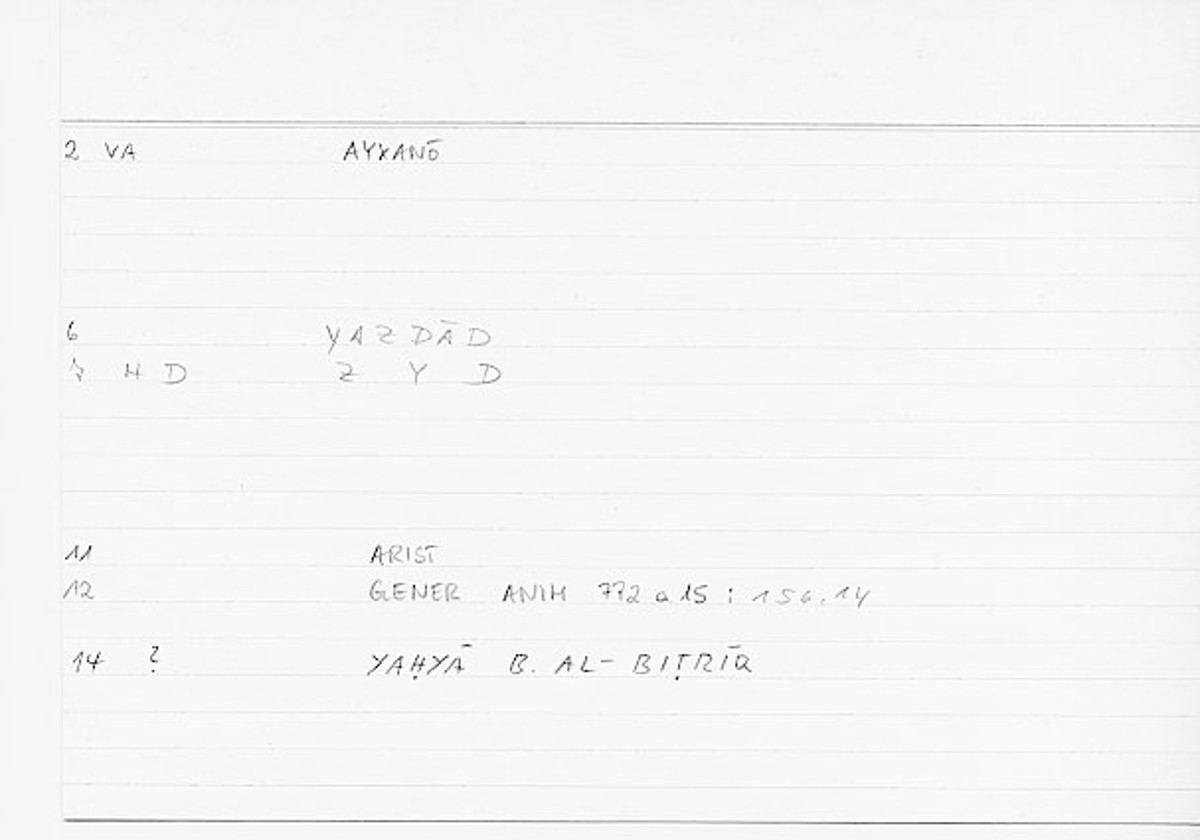 2 VA AYXANŌ
6 YAZDĀD
7 HD Z Y D
11 ARIST
12 GENER ANIM 772 a 15 : 156.14
14 ? YAḤYĀ B. AL-BIṬRĪQ